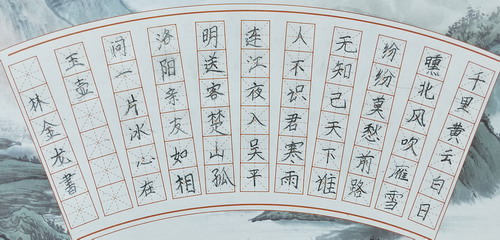 千里黄云白日
曛北风吹雁雪
纷纷莫愁前路
无知己天下谁
人不识君寒雨
连江夜入吴平
明送客楚山孤
洛阳亲友如相
问一片冰心在
玉壶
林金龙書